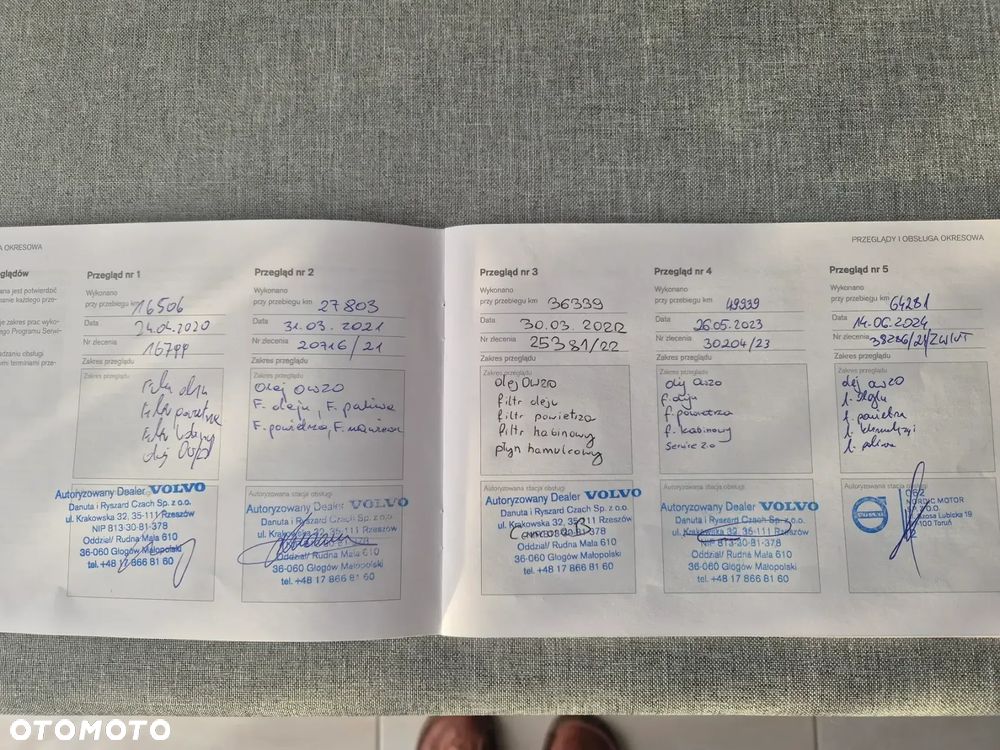 A OKRESOWA
PRZEGLĄDY I OBSŁUGA OKRESOWA
glądów
ana jest potwierdzić
Przegląd nr 1
Wykonano
przy przebiegu km 16506
Data 24.04.2020
Nr zlecenia 16799
Zakres przeglądu
Zakres przeglądu
Filtr oleju
Filtr powietrza
Filtr
olej
Autoryzowany Dealer VOLVO
Danuta i Ryszard Czach Sp. z o.o.
ul. Krakowska 32, 35-111 Rzeszów
NIP 813-30-81-378
Oddział/ Rudna Mała 610
36-060 Głogów Małopolski
tel. +48 17 866 81 60
Przegląd nr 2
Wykonano
przy przebiegu km 27803
Data 31.03.2021
Nr zlecenia 20716/21
Zakres przeglądu
Zakres przeglądu
Olej 0W20
F. oleju, F. paliwa
F. powietrza, F.
Autoryzowana stacja obsługi
Autoryzowany Dealer VOLVO
Danuta i Ryszard Czach Sp. z o.o.
ul. Krakowska 32, 35-111 Rzeszów
Oddział/ Rudna Mała 610
36-060 Głogów Małopolski
tel. +48 17 866 81 60
Przegląd nr 3
Wykonano
przy przebiegu km 36339
Data 30.03.2022
Nr zlecenia 25381/22
Zakres przeglądu
Zakres przeglądu
olej 0W20
filtr oleju
filtr powietrza
filtr kabinowy
płyn hamulcowy
Autoryzowany Dealer VOLVO
Danuta i Ryszard Czach Sp. z o.o.
ul. Krakowska 32, 35-111 Rzeszów
Oddział/ Rudna Mała 610
36-060 Głogów Małopolski
tel. +48 17 866 81 60
Przegląd nr 4
Wykonano
przy przebiegu km 49939
Data 26.05.2023
Nr zlecenia 30204/23
Zakres przeglądu
Zakres przeglądu
olej 0W20
f. oleju
f. powietrza
f. kabinowy
Service 2.0
Autoryzowana stacja obsługi
Autoryzowany Dealer VOLVO
Danuta i Ryszard Czach Sp. z o.o.
ul. Krakowska 32, 35-111 Rzeszów
NIP 813-30-81-378
Oddział/ Rudna Mała 610
36-060 Głogów Małopolski
tel. +48 17 866 81 60
Przegląd nr 5
Wykonano
przy przebiegu km 64281
Data 14.06.2024
Nr zlecenia
Zakres przeglądu
Zakres przeglądu
olej 0W20
f. oleju
f. powietrza
f.
f. paliwa
Autoryzowana stacja obsługi
VOLVO
NORDIC MOTOR
Lubicka 19
100 Toruń
OTOMOTO